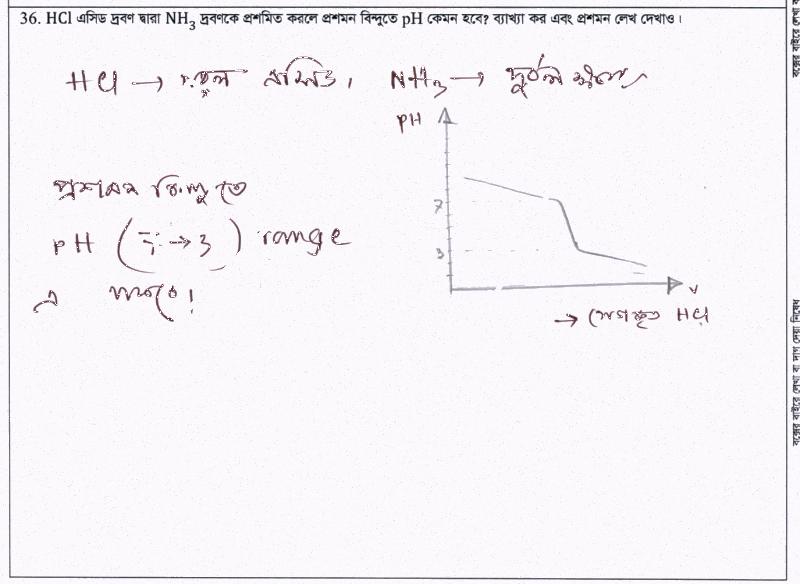 36. HCl এসিড দ্রবণ দ্বারা NH3 দ্রবণকে প্রশমিত করলে প্রশমন বিন্দুতে pH কেমন হবে? ব্যাখ্যা কর এবং প্রশমন লেখ দেখাও।
HCl → এসিড, NH3 → দুর্বল ক্ষার
PH
প্রশমন বিন্দুতে
7
pH ( 7 → 3 ) range
3
এ থাকবে।
V
→ HCl
বক্সের বাইরে লেখা বা দাগ দেয়া নিষেধ